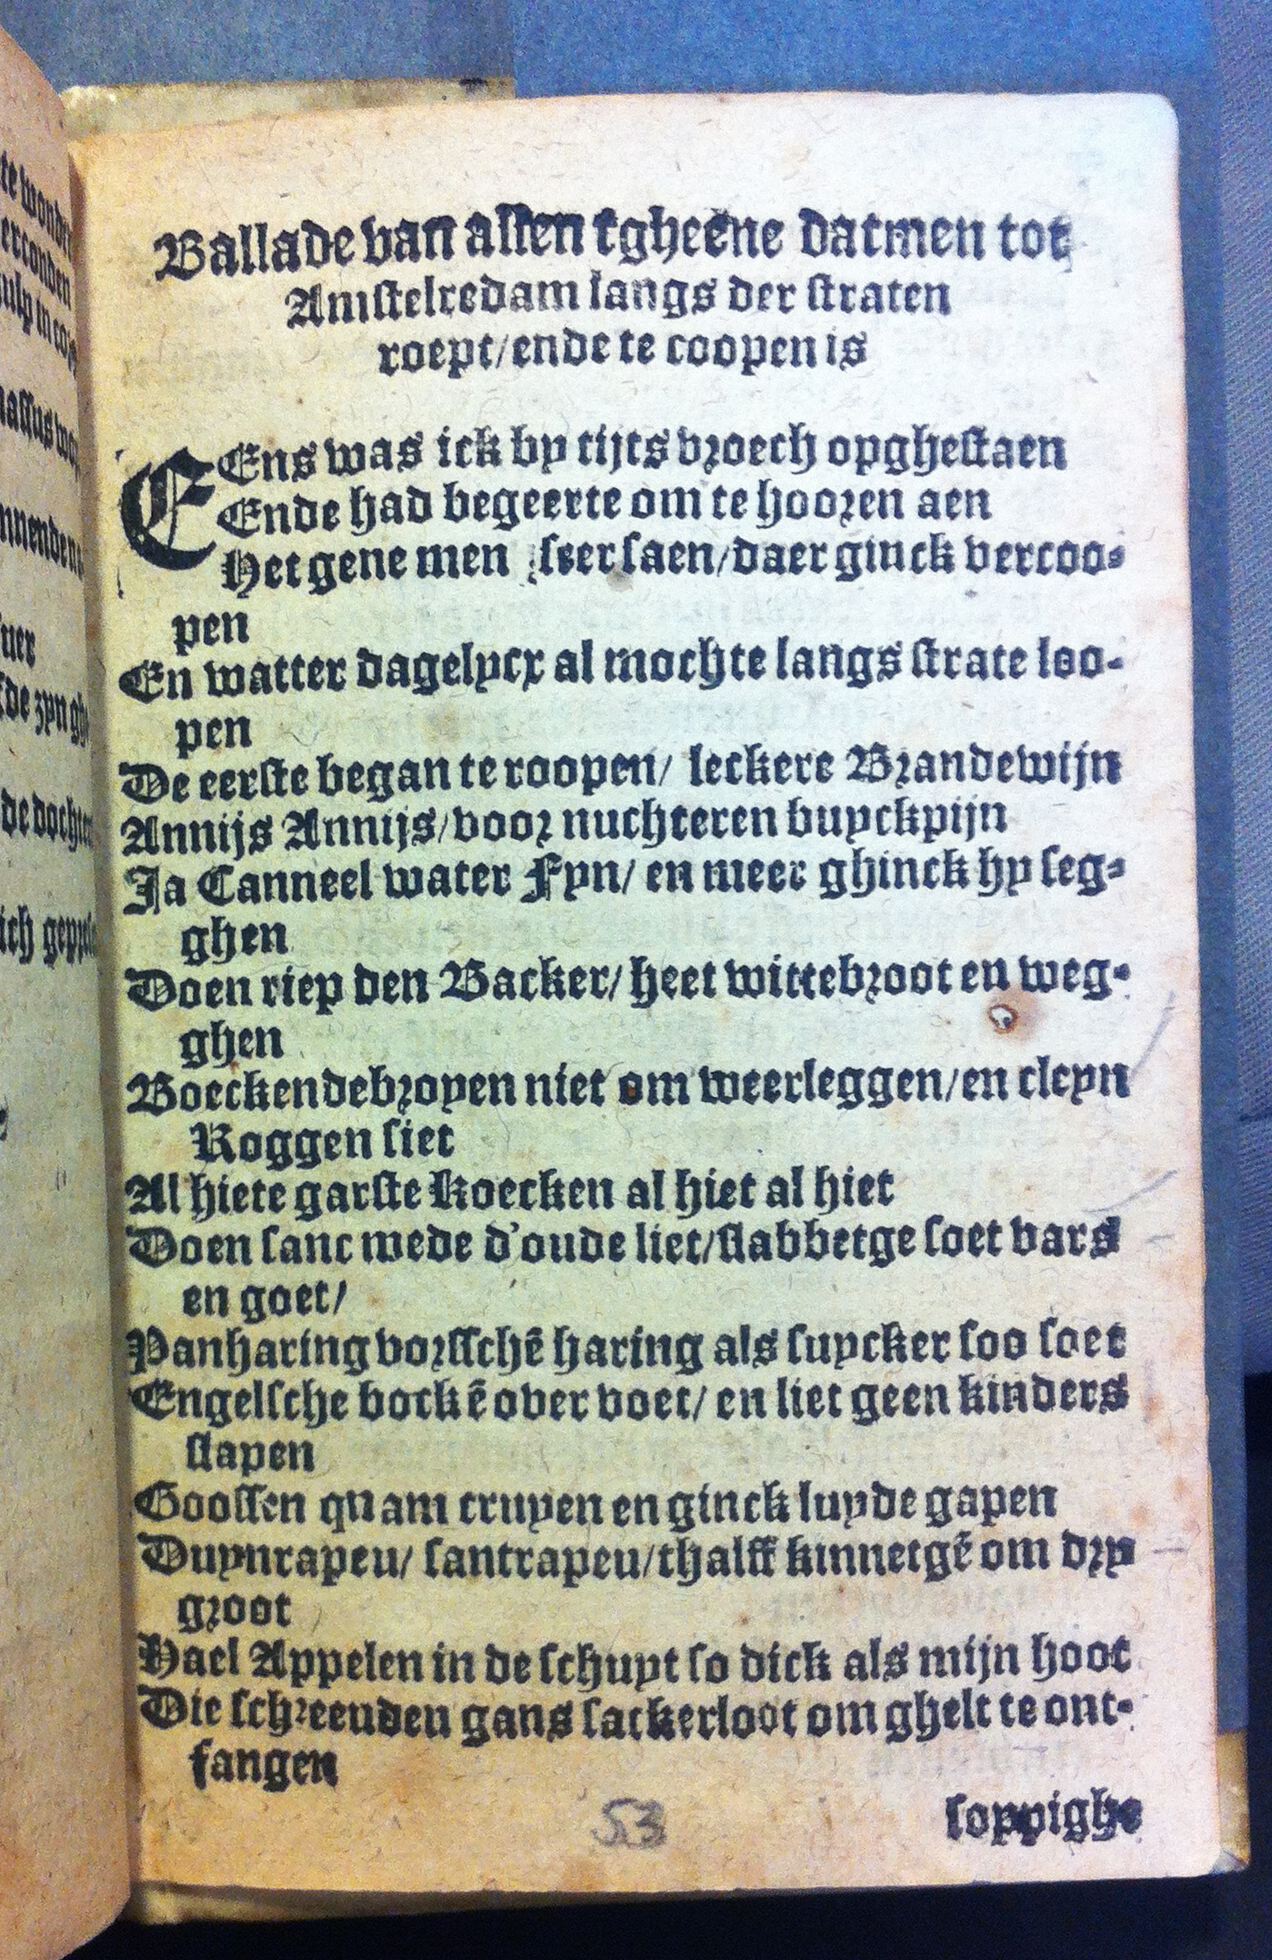 te wonder
nde zyn gh
de dochter
Ballade van allen tgheene datmen tot
Amstelredam langs der straten
roept/ende te coopen is
EEns was ick by tijts vroech opghestaen
Ende had begeerte om te hooren aen
Het gene men seer saen/daer ginck vercoo-
pen
En watter dagelycx al mochte langs strate loo-
pen
De eerste began te roopen/ leckere Brandewijn
Annijs Annijs/voor nuchteren buyckpijn
Ja Canneel water Fyn/ en meer ghinck hy seg-
ghen
Doen riep den Backer/ heet wittebroot en weg-
ghen
Boeckendebroyen niet om weerleggen/en cleyn
Roggen siet
Al hiete garste koecken al hiet al hiet
Doen sanc mede d'oude liet/slabbetge soet vars
en goet/
Panharing vorsschē haring als suycker soo soet
Engelsche bockē over voet/ en liet geen kinders
slapen
Goossen quam cruyen en ginck luyde gapen
Duynrapeu/ santrapeu/thalff kinnetgē om dry
groot
Hael Appelen in de schuyt so dick als mijn hoot
Die schreeuden gans sackerloot om ghelt te ont-
fangen
53
soppighe